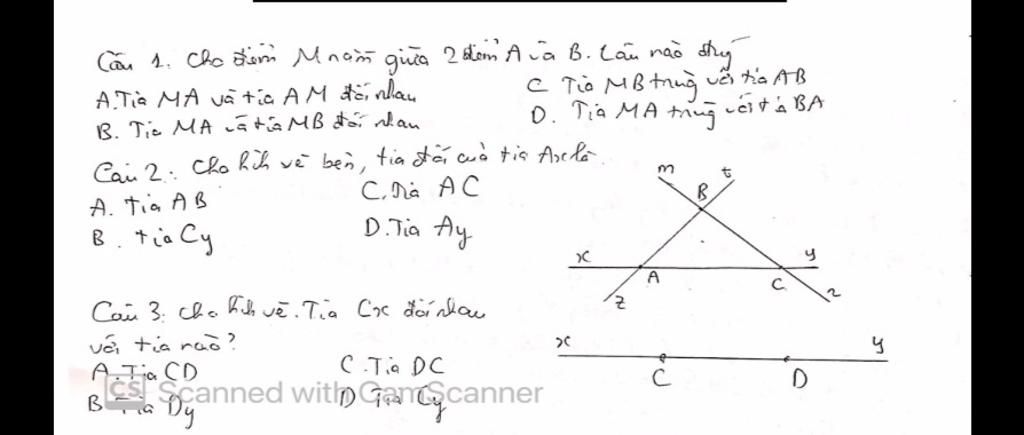 Câu 1. Cho điểm M nằm giữa 2 điểm A và B. Câu nào đúng
A. Tia MA và tia AM đối nhau
C Tia MB trùng với tia AB
B. Tia MA và tia MB đối nhau
D. Tia MA trùng với tia BA
Câu 2: Cho hình vẽ bên, tia đối của tia Ax là
A. Tia AB
C. Tia AC
B. tia Cy
D. Tia Ay
m t
B
x y
A C
z
Câu 3: Cho hình vẽ. Tia Cx đối nhau
với tia nào?
A. Tia CD
C. Tia DC
B Tia Dy
D Tia Cy
x y
C D
CS Scanned with CamScanner